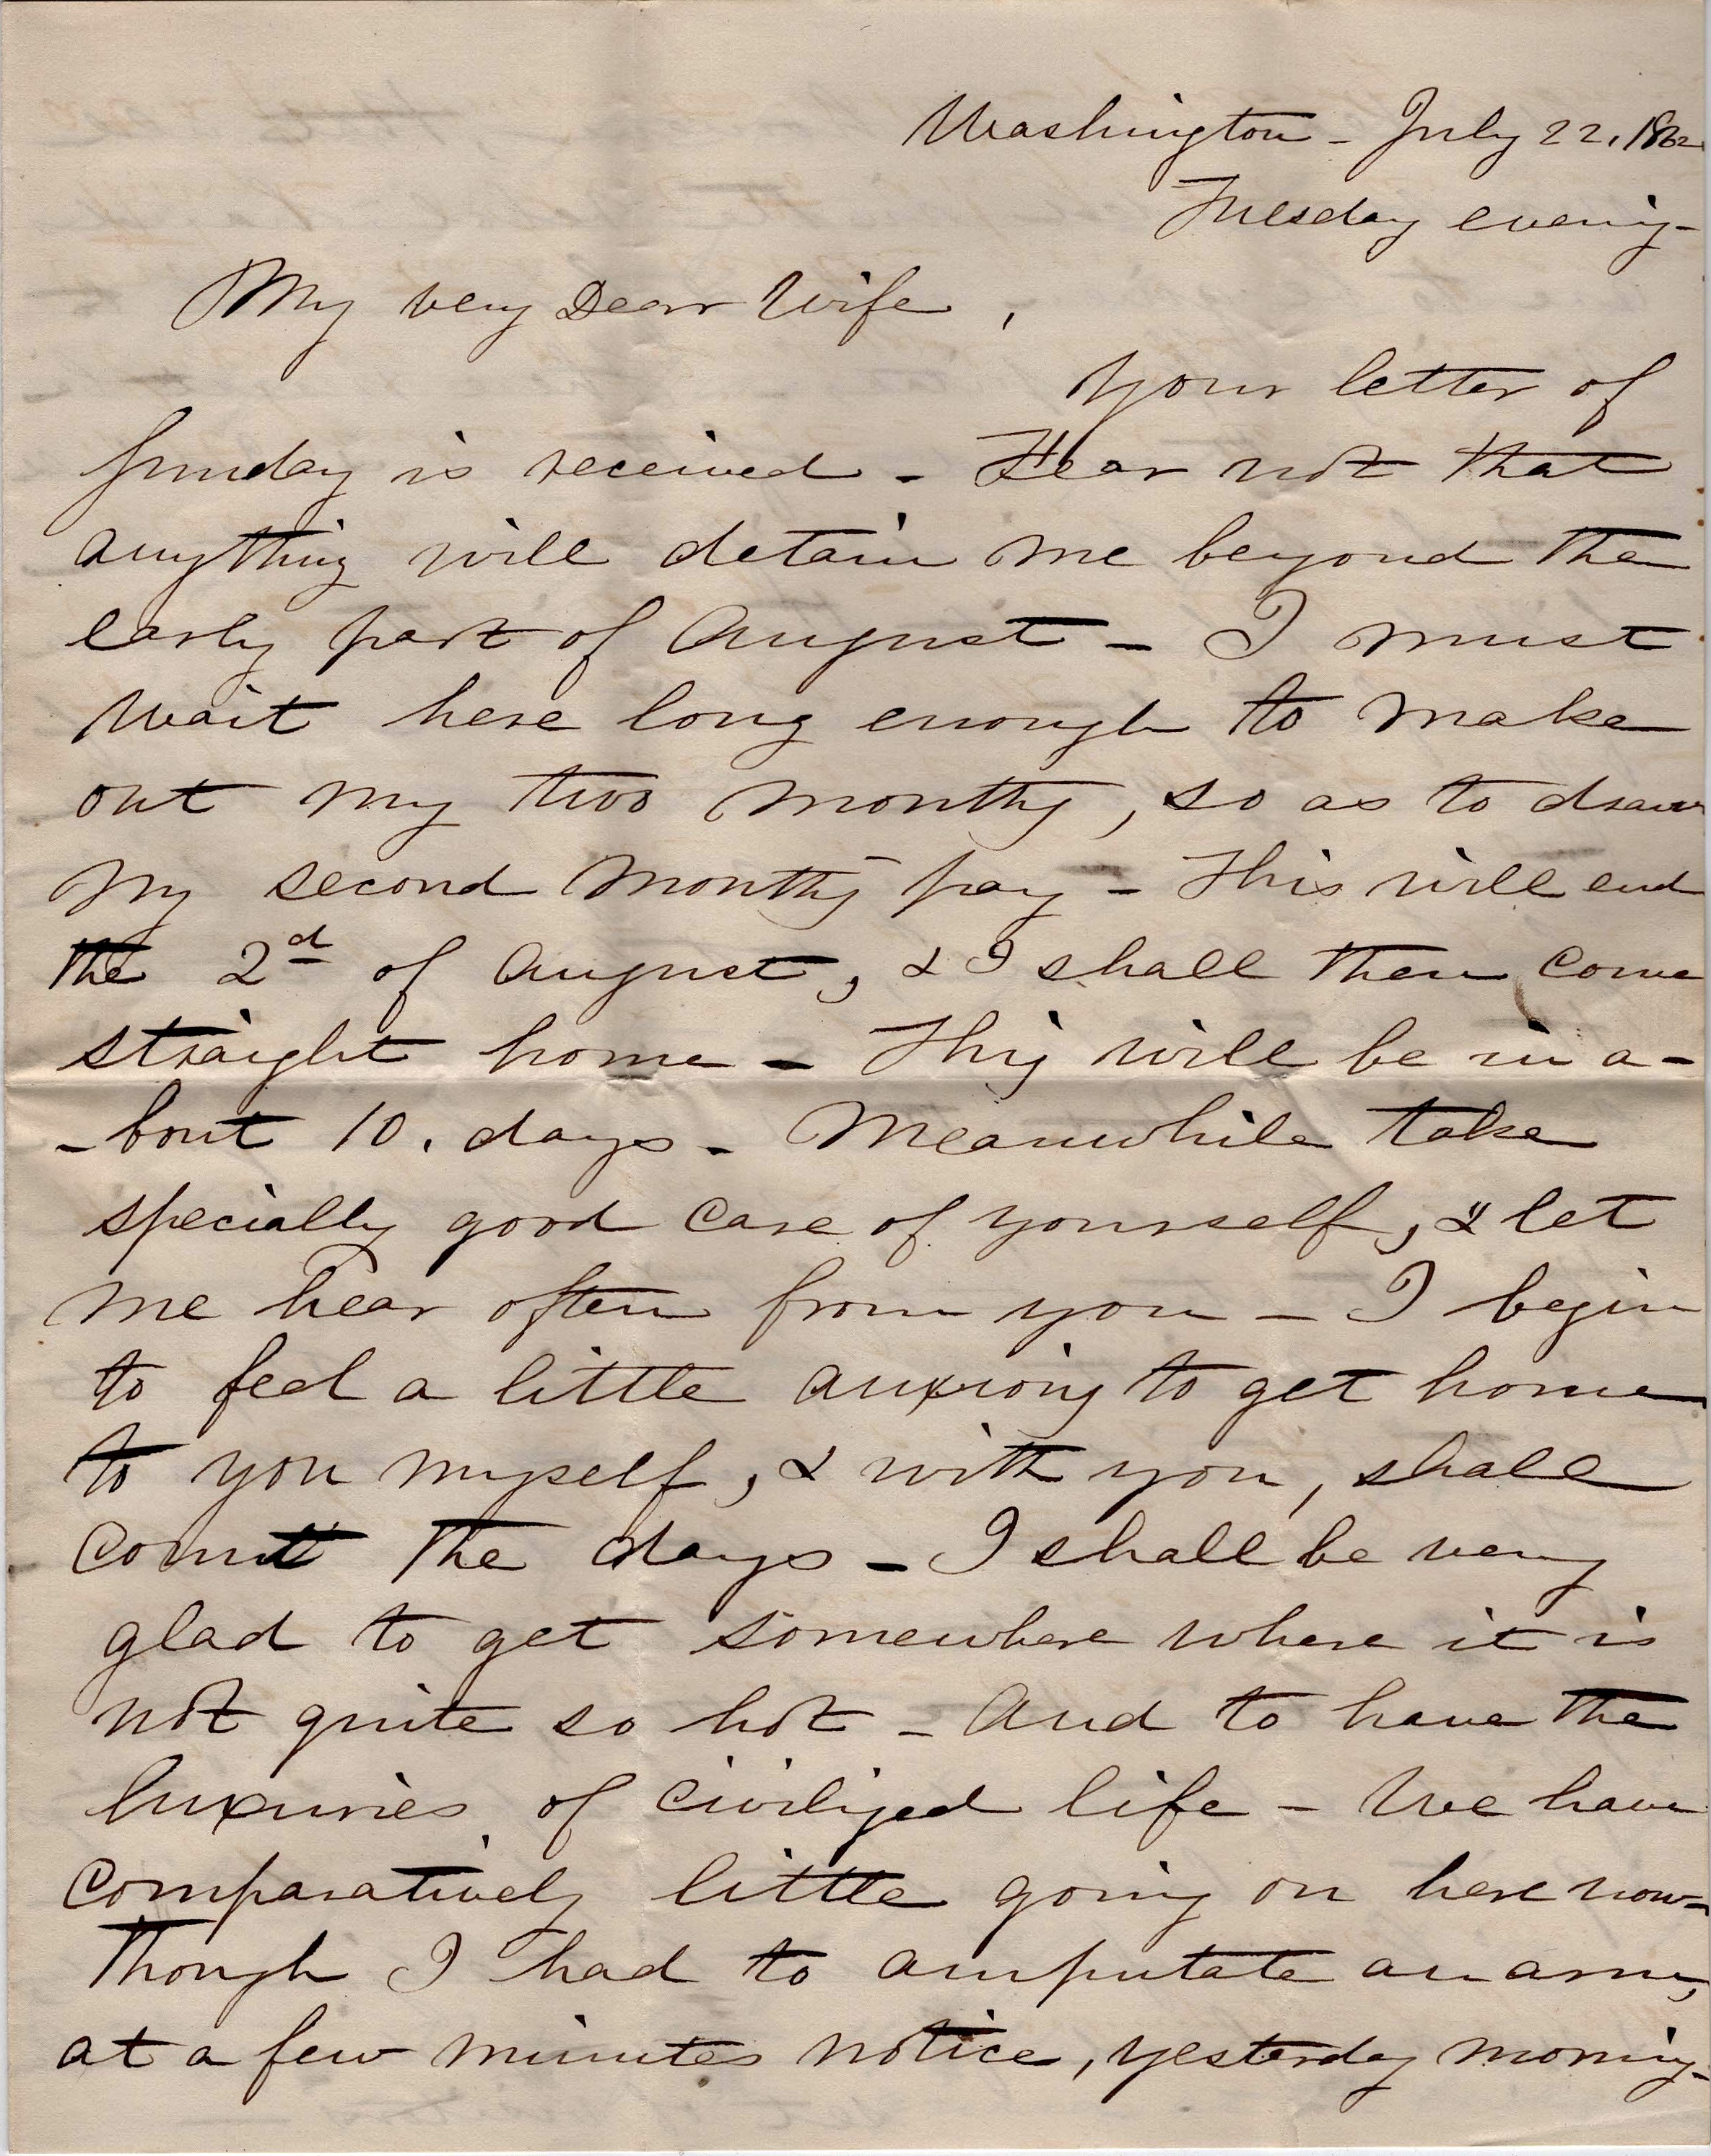 Washington - July 22. 1862
Tuesday evening -
My very Dear Wife,
Your letter of
Sunday is received - Fear not that
anything will detain me beyond the
early part of August - I must
wait here long enough to make
out my two months, so as to draw
my second months pay - This will end
the 2d of August, & I shall then come
straight home - This will be in a-
-bout 10. days - Meanwhile take
specially good care of yourself, & let
me hear often from you - I begin
to feel a little anxious to get home
to you myself, & with you, shall
count the days - I shall be very
glad to get somewhere where it is
not quite so hot - And to have the
luxuries of civilized life - We have
comparatively little going on here now -
Though I had to amputate an arm,
at a few minutes notice, yesterday morning -